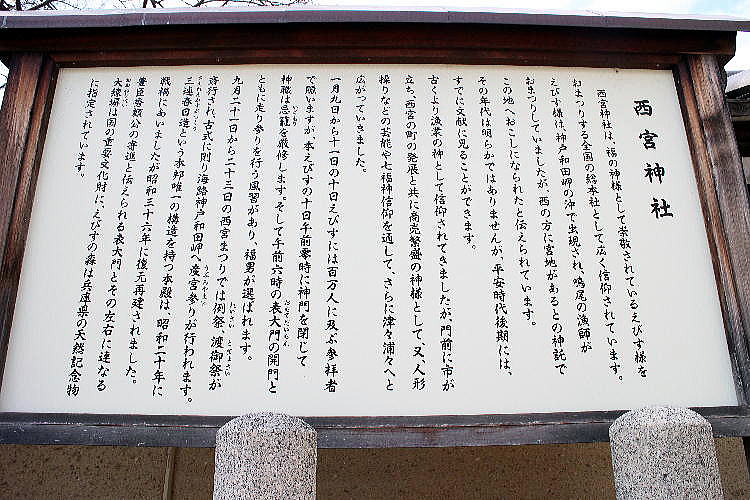 西宮神社
西宮神社は、福の神様として崇敬されているえびす様を
おまつりする全国の総本社として広く信仰されています。
えびす様は、神戸和田岬の沖で出現され、鳴尾の漁師が
おまつりしていましたが、西の方に宮地があるとの神託で
この地へおこしになられたと伝えられています。
その年代は明らかではありませんが、平安時代後期には、
すでに文献に見ることができます。
古くより漁業の神として信仰されてきましたが、門前に市が
立ち、西宮の町の発展と共に商売繁盛の神様として、又、人形
操りなどの芸能や七福神信仰を通して、さらに津々浦々へと
広がっていきました。
一月九日から十一日の十日えびすには百万人に及ぶ参拝者
で賑いますが、本えびすの十日午前零時に神門を閉じて
神職は忌籠を厳修します。そして午前六時の表大門の開門と
ともに走り参りを行う風習があり、福男が選ばれます。
九月二十一日から二十三日の西宮まつりでは例祭、渡御祭が
斎行され、古式に則り海路神戸和田岬へ渡宮参りが行われます。
三連春日造という本邦唯一の構造を持つ本殿は、昭和二十年に
戦禍にあいましたが昭和三十六年に復元再建されました。
豊臣秀頼公の寄進と伝えられる表大門とその左右に連なる
大練塀は国の重要文化財に、えびすの森は兵庫県の天然記念物
に指定されています。